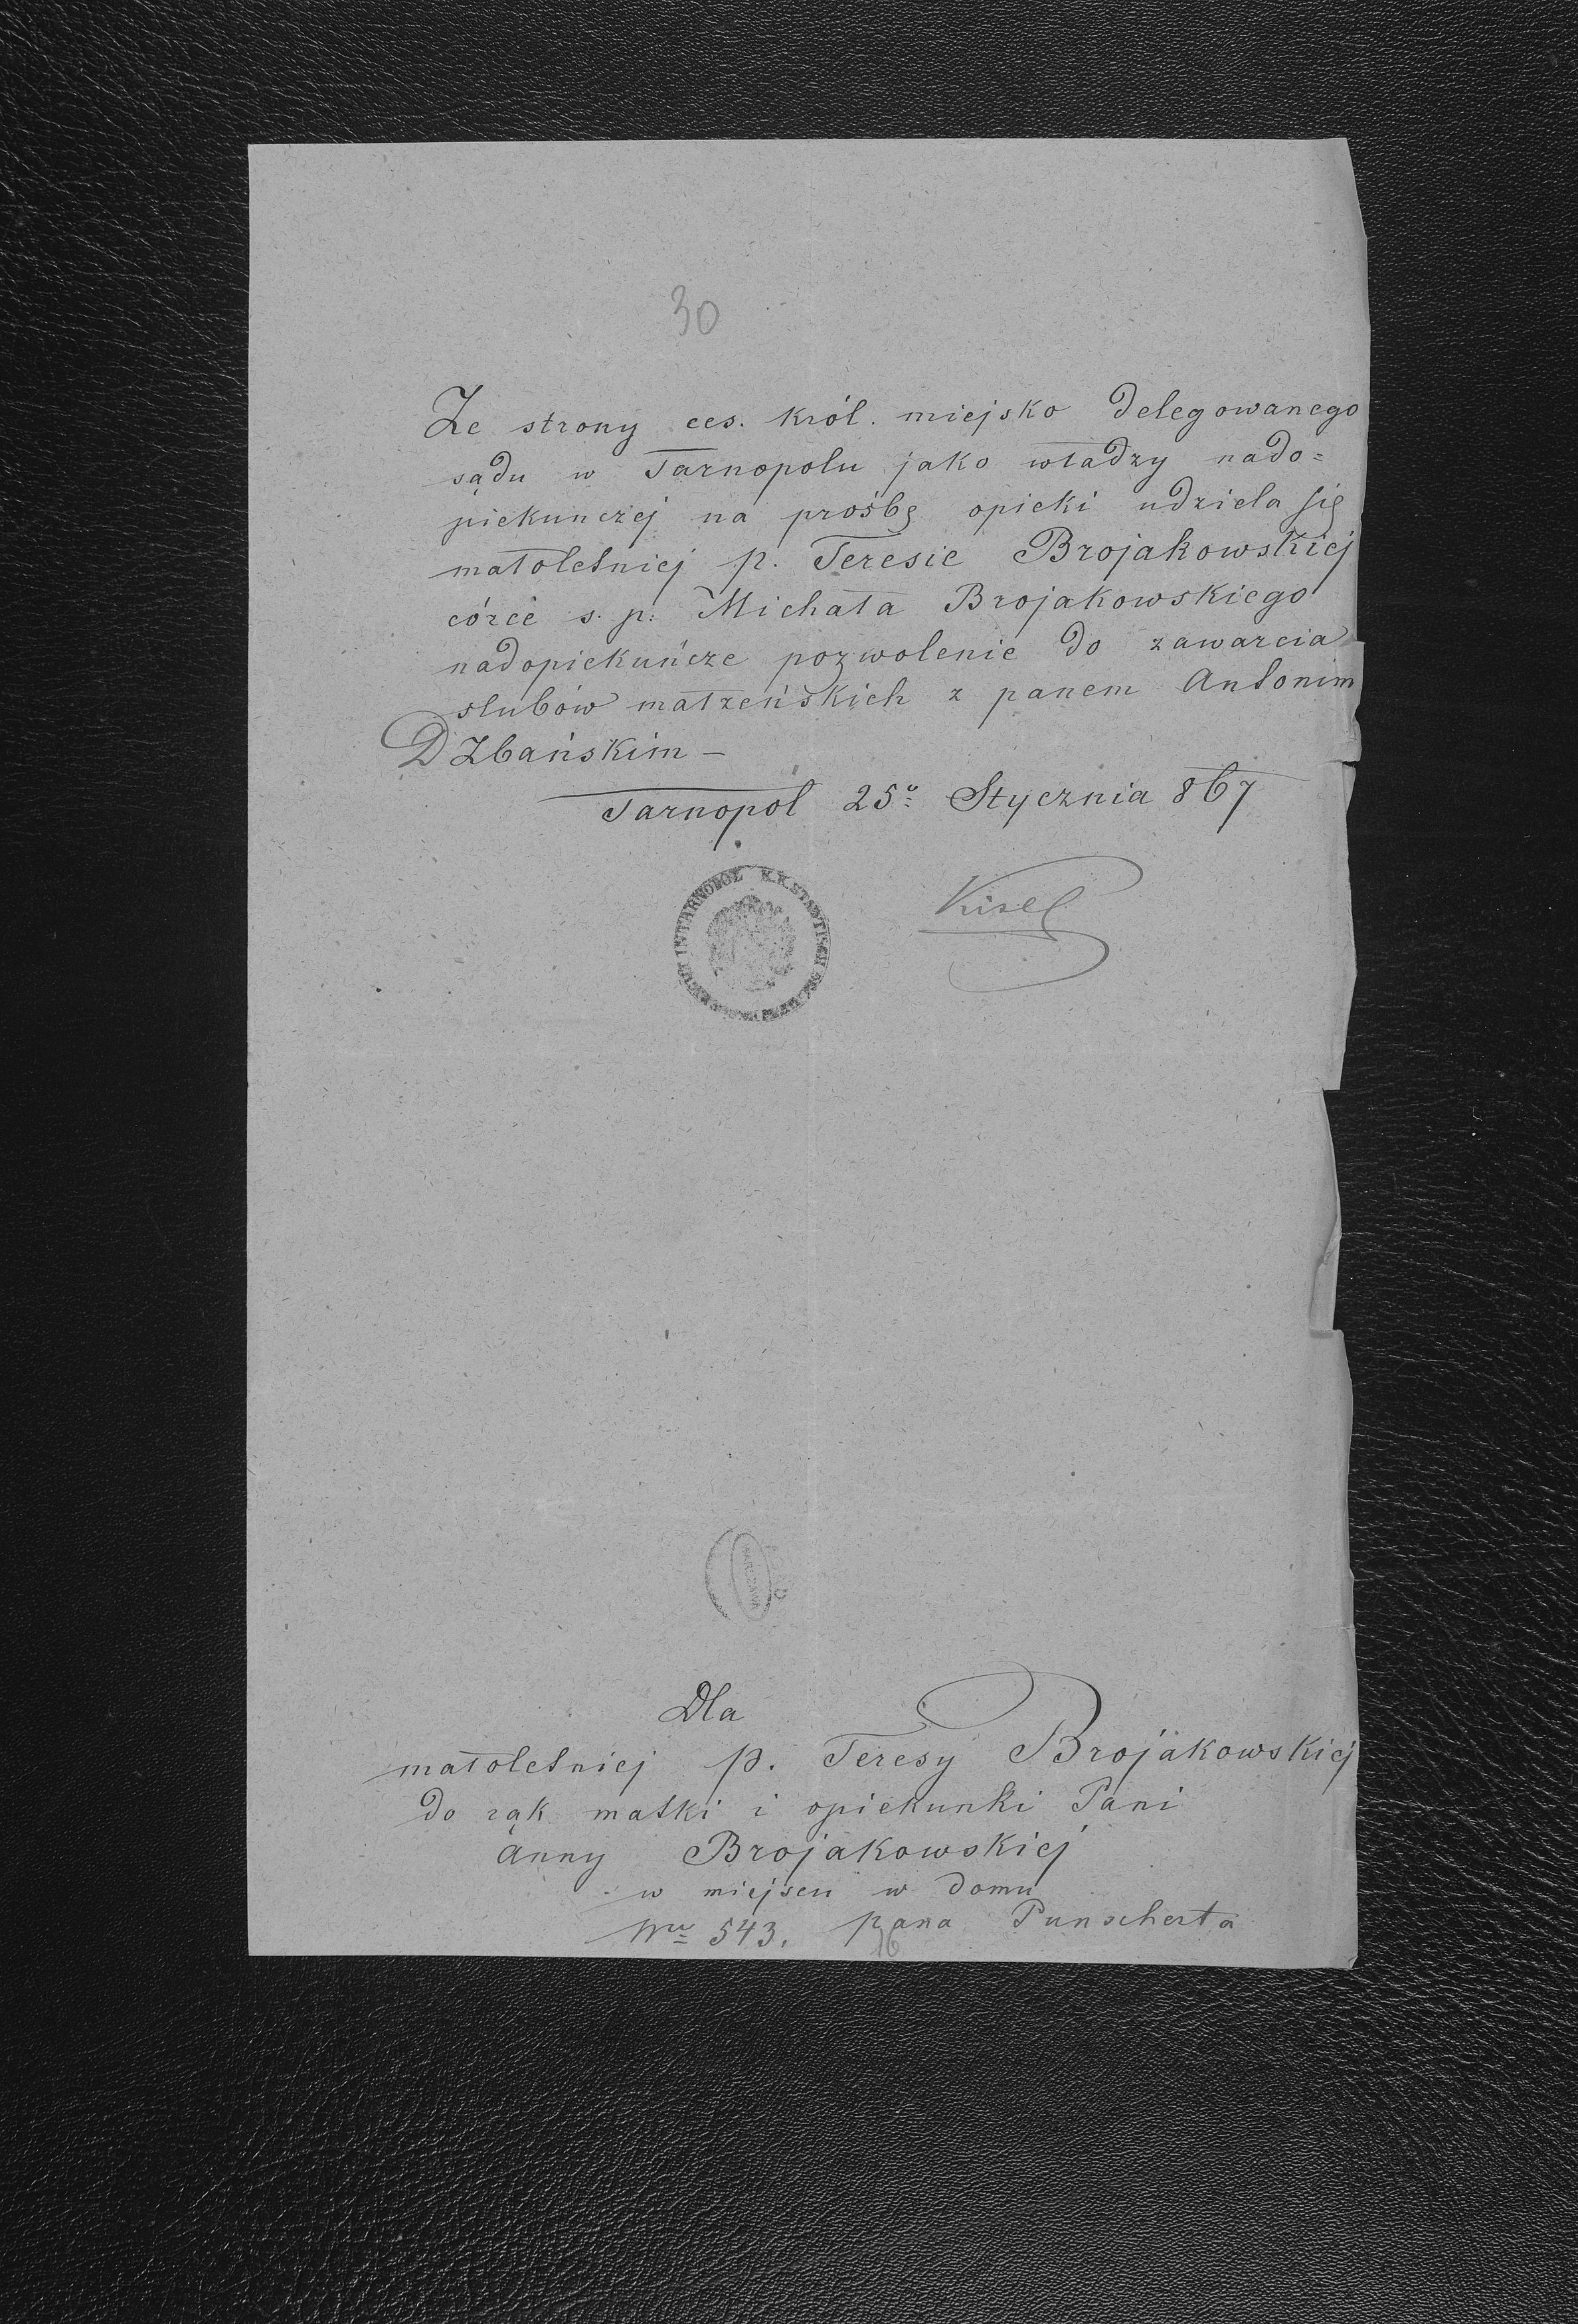 30
Ze strony ces. król. miejsko delegowanego
sądu w Tarnopolu jako władzy nado=
piekunczej na prośbę opieki udziela się
małoletniej p. Teresie Brojakowskiej
córce s. p. Michała Brojakowskiego
nadopiekuńcze pozwolenie do zawarcia
slubów małżeńskich z panem Antonim
DZbańskim —
Tarnopol 25º Stycznia 867
K. K. STÄDTISCH IN TARNOPOL
Kisel
WARSZAWA
Dla
małoletniej p. Teresy Brojakowskiej
do rąk matki i opiekunki Pani
Anny Brojakowskiej
w miejscu w domu
Nru 543. pana Punscherta
16